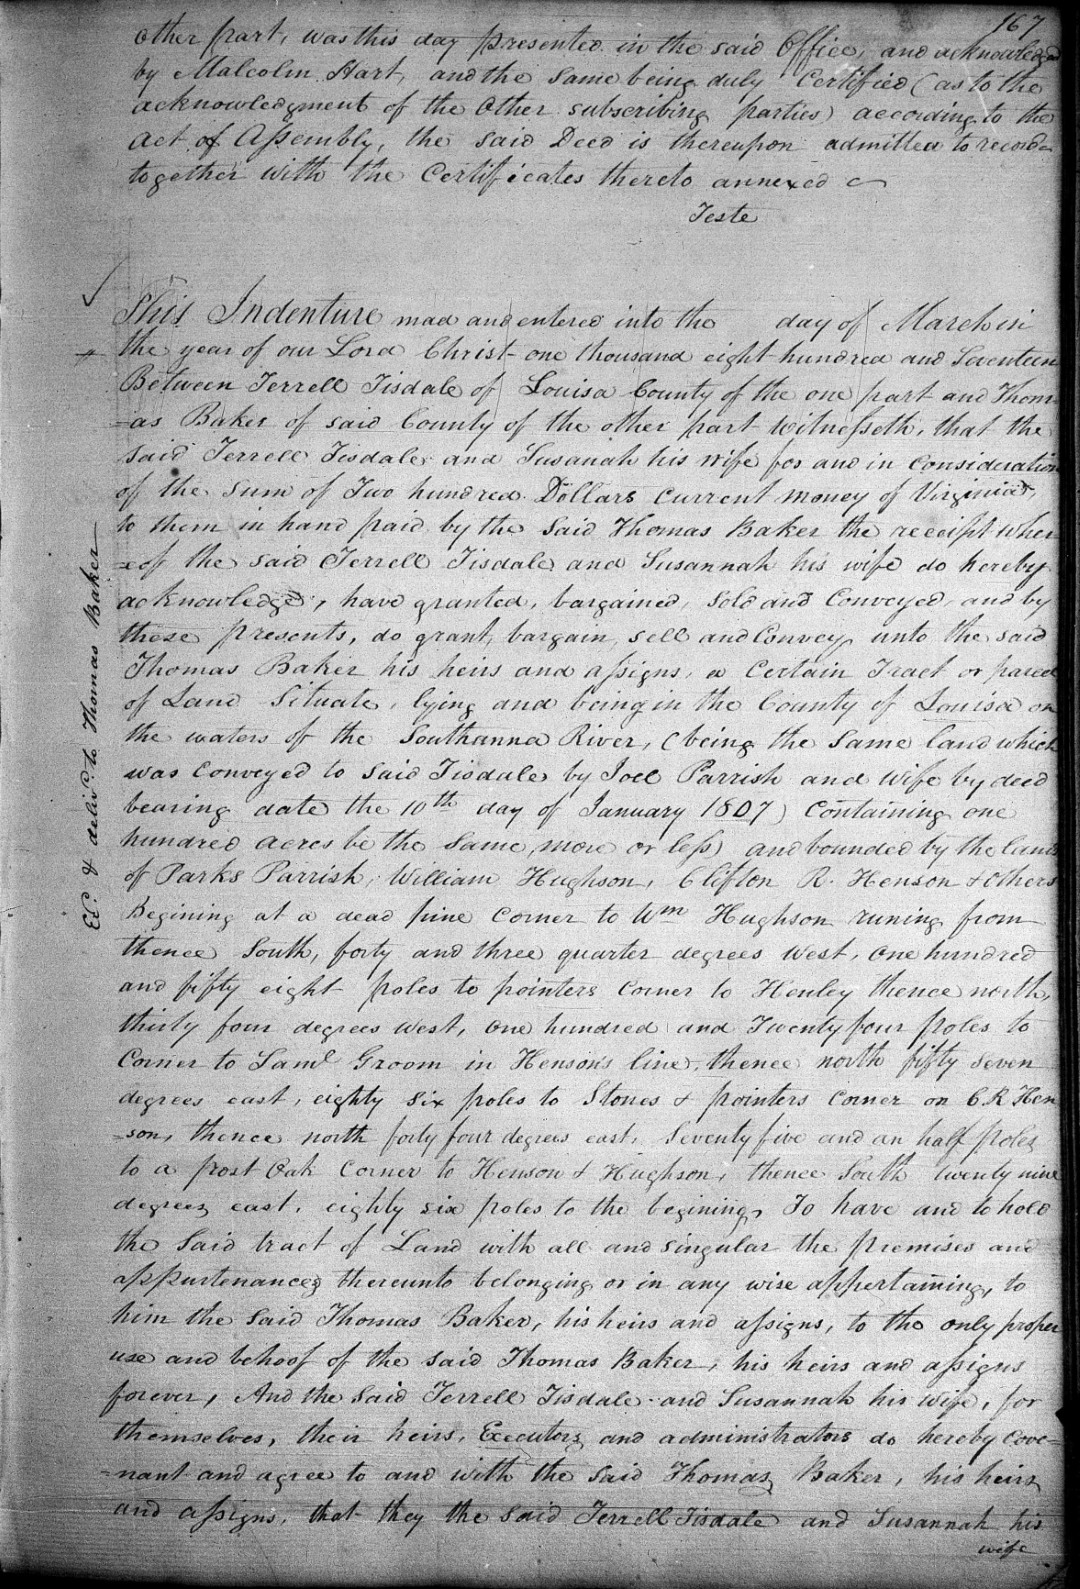 167
other part, was this day presented in the said Office, and acknowledged
by Malcolm Hart, and the same being duly Certified (as to the
acknowledgment of the other subscribing parties) according to the
act of Assembly, the said Deed is thereupon admitted to record
together with the Certificates thereto annexed
Teste
This Indenture mad and entered into the day of March in
the year of our Lord Christ one thousand eight hundred and Seventeen
Between Terrell Tisdale of Louisa County of the one part and Thom
=as Baker of said County of the other part Witnesseth, that the
said Terrell Tisdale and Susanah his wife for and in Consideration
of the Sum of Two hundred Dollars current money of Virginia,
to them in hand paid by the said Thomas Baker the receipt wher
=eof the said Terrell Tisdale and Susannah his wife do hereby
acknowledge, have granted, bargained, sold and Conveyed, and by
these presents, do grant, bargain, sell and Convey, unto the said
Thomas Baker his heirs and assigns, a Certain Tract or parcel
of Land Situate, lying and being in the County of Louisa on
the waters of the Southanna River, (being the same land which
was conveyed to said Tisdale by Joel Parrish and wife by deed
bearing date the 10th day of January 1807) Containing one
hundred acres be the same, more or less) and bounded by the lands
of Parks Parrish, William Hughson, Clifton R. Henson & others
Begining at a dead pine corner to Wm Hughson runing from
thence South, forty and three quarter degrees West, one hundred
and fifty eight poles to pointers corner to Henley thence north,
thirty four degrees West, one hundred and Twenty four poles to
Corner to Saml Groom in Henson's line, thence north fifty seven
degrees east, eighty six poles to Stones & pointers Corner on C. R Hen
=son, thence north forty four degrees east, Seventy five and an half poles
to a post Oak Corner to Henson & Hughson, thence South twenty nine
degrees east, eighty six poles to the begining, To have and to hold
the Said tract of Land with all and singular the premises and
appurtenances thereunto belonging or in any wise appertaining, to
him the Said Thomas Baker, his heirs and assigns, to the only proper
use and behoof of the said Thomas Baker, his heirs and assigns
forever, And the Said Terrell Tisdale and Susannah his wife, for
themselves, their heirs, Executors and administrators do hereby Cove=
=nant and agree to and with the said Thomas Baker, his heirs
and assigns, that they the said Terrell Tisdale and Susannah his
wife
Ex. & delivd. to Thomas Baker